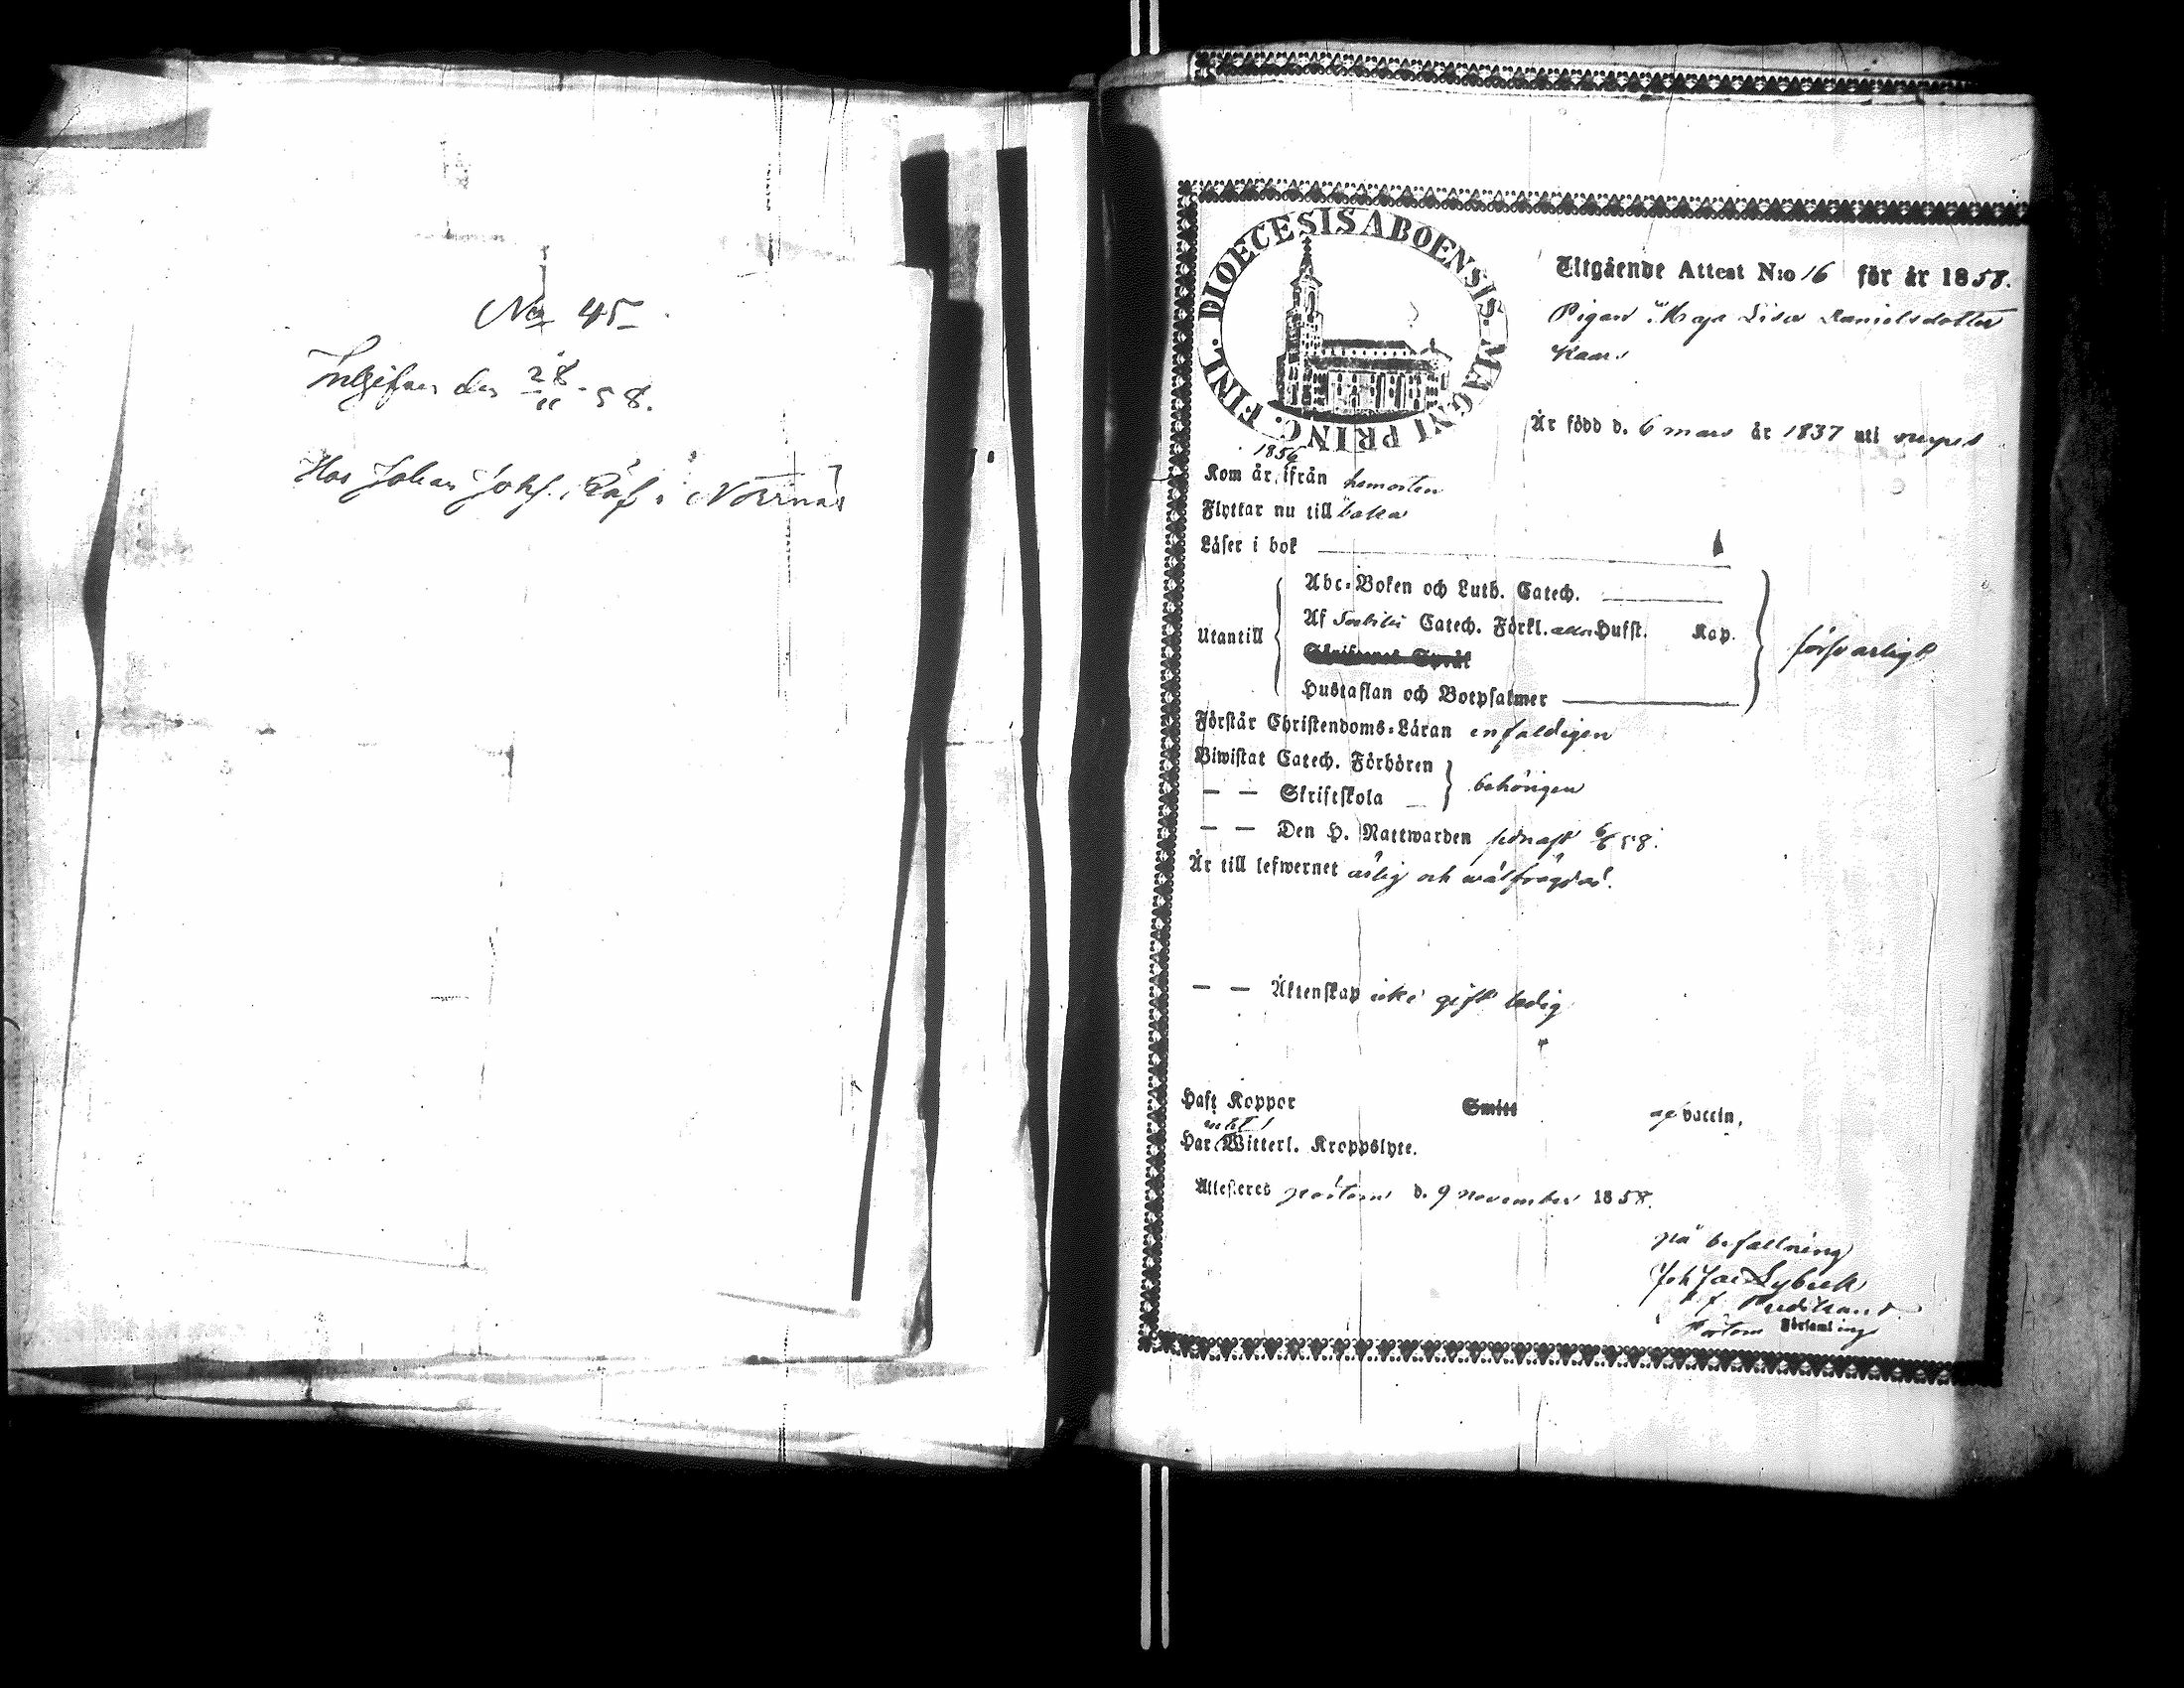 No 45
Inlefver den 28/11 58.
Hos Johan Johs. Räf i Norrnäs
DIOECESIS ABOENSIS. MAGNI PRINC. FINL.
Utgående Attest N:o 16 för år 1858.
Pigan Maja Lisa Danielsdotter
Är född d. 6 mars år 1837 uti
1856
Kom år, ifrån hemorten
Flyttar nu till baka
Läser i bok
Abc-Boken och Luth. Catech.
Utantill
Af Svebilii Catech. Förkl. Hufst. Kap.
Skriftenes Språk
Hustaflan och Botpsalmer
försvarligt
Förstår Christendoms-Läran enfaldigen
Biwistat Catech. Förhören
— — Skriftskola
behörigen
— — Den H. Nattwarden sednast 58.
Är till lefwernet ärlig och wälfrägdad.
— — Äktenskap icke gift ledig
Haft Koppor Smitt vaccin.
Har Witterl. Kroppslyte.
Attesteres Pörtom d. 9 november 1858.
på befallning
Joh Jac Lybeck
Pörtom Församling